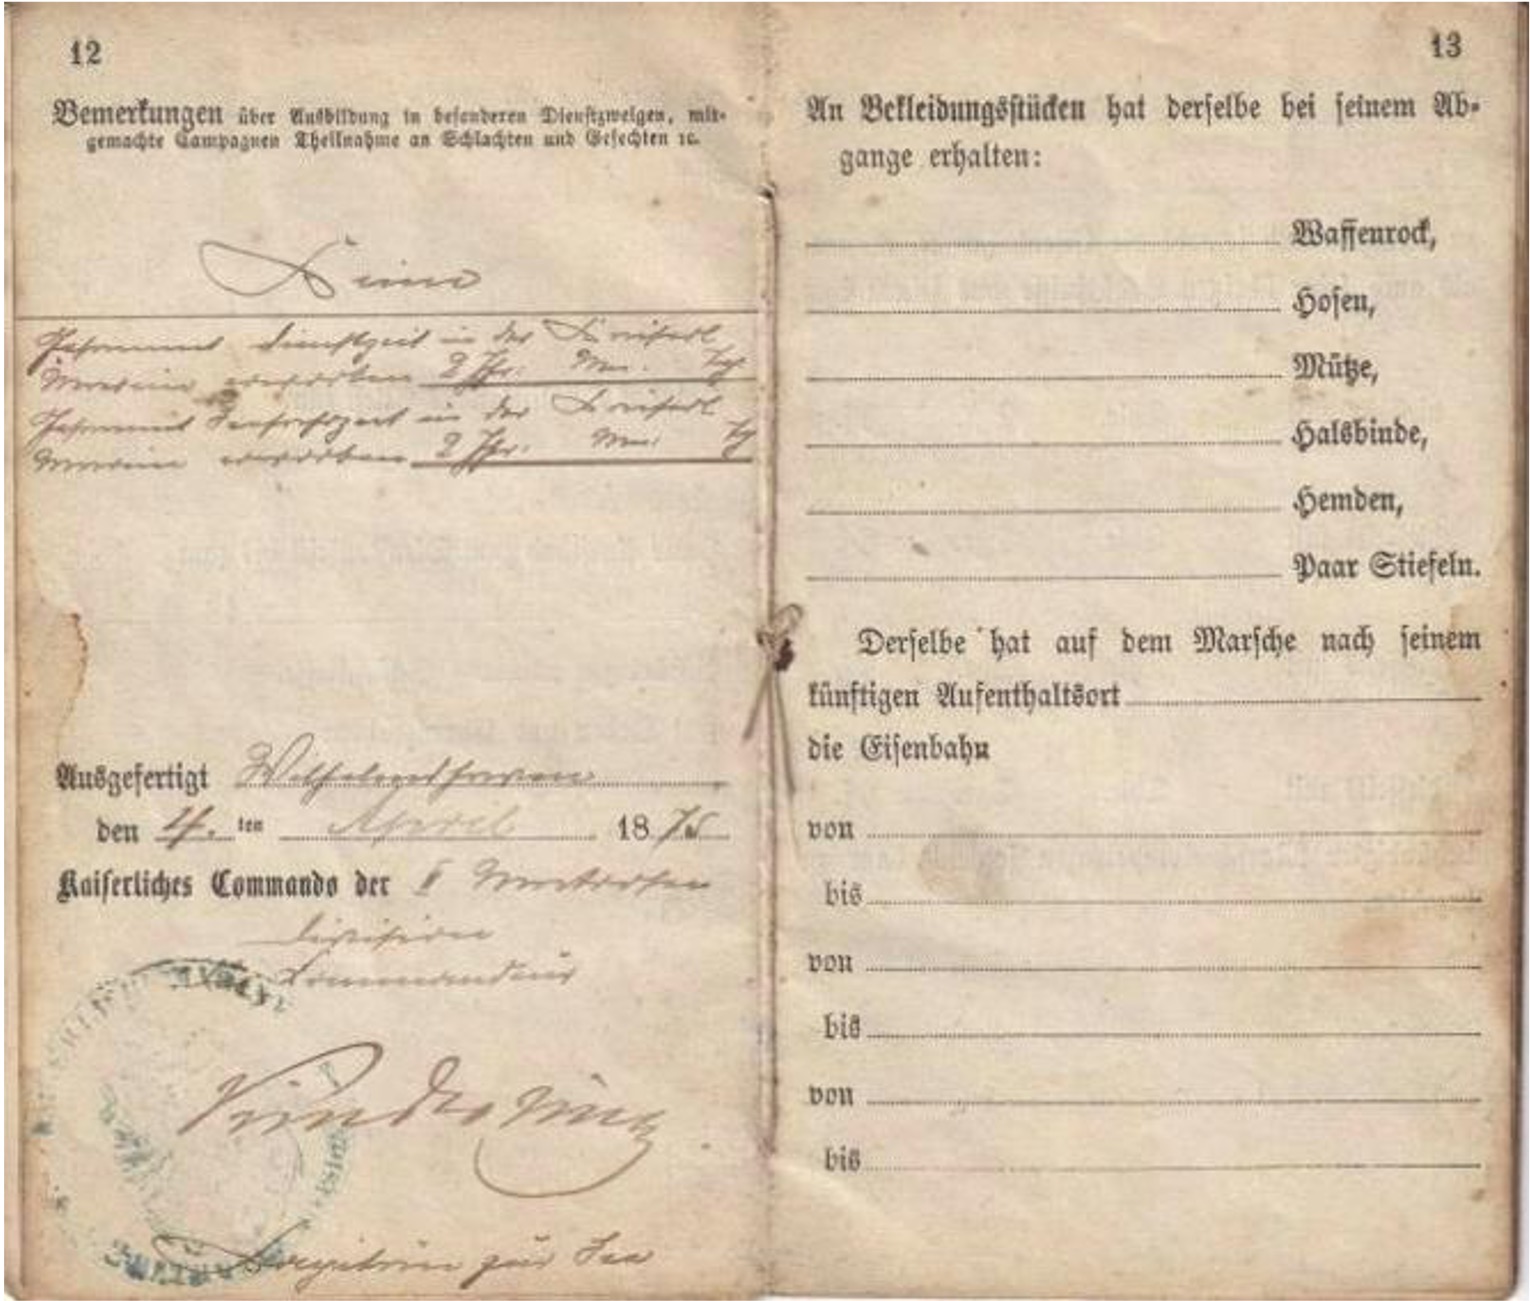 12
Bemerkungen über Ausbildung in besonderen Dienstzweigen, mit-
gemachte Campagnen Theilnahme an Schlachten und Gefechten ꝛc.
Keine
dienstzeit in der Kaiserl
Marine erworben 2 Jhr. Mon. Tg
in der Kaiserl
Marine erworben 2 Jhr. Mon. Tg
Ausgefertigt Wilhelmshaven
den 4. ten April 1875
Kaiserliches Commando der II Matrosen
Division
Commandeur
Capitain zur See
13
An Bekleidungsstücken hat derselbe bei seinem Ab-
gange erhalten:
Waffenrock,
Hosen,
Mütze,
Halsbinde,
Hemden,
Paar Stiefeln.
Derselbe hat auf dem Marsche nach seinem
künftigen Aufenthaltsort
die Eisenbahn
von
bis
von
bis
von
bis